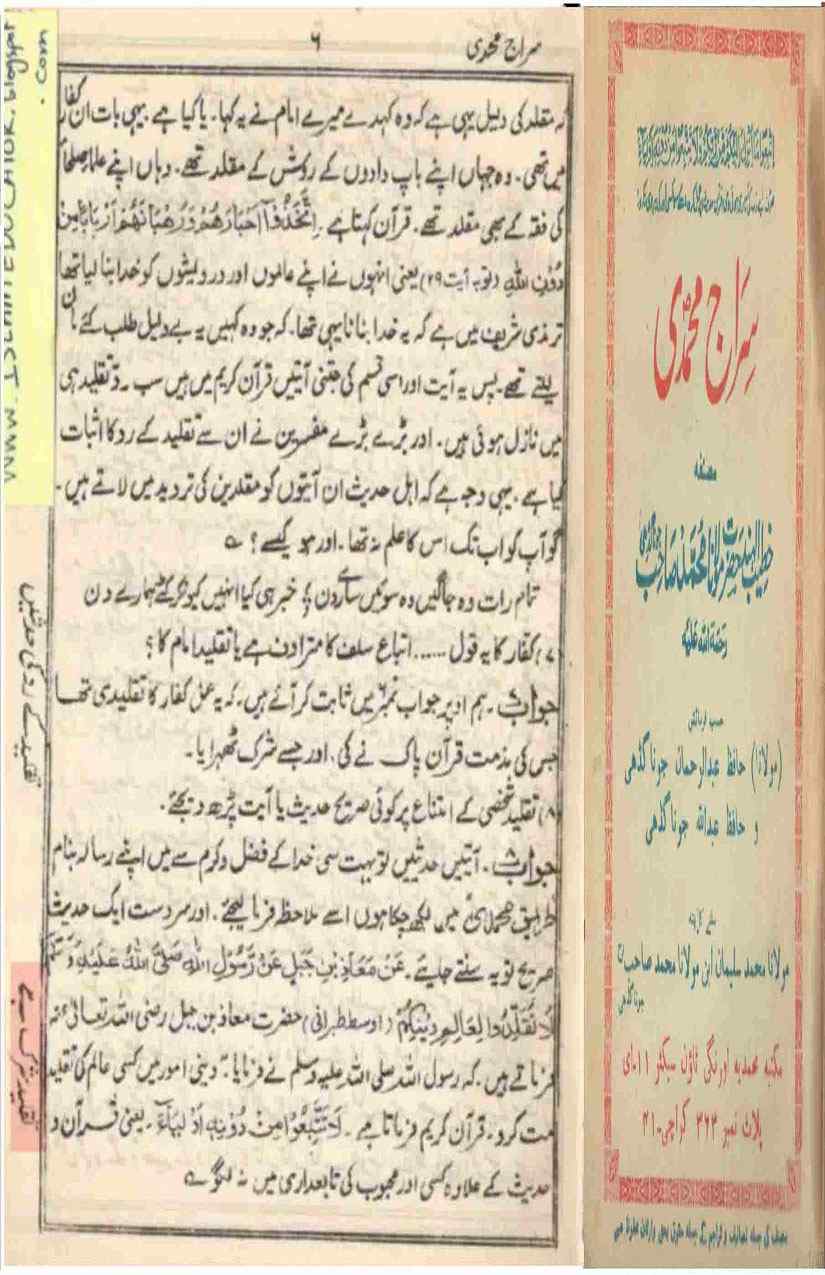 سراج محمدی
۶
کہ مقلد کی دلیل یہی ہے کہ وہ کہدے میرے امام نے یہ کہا۔ یا کیا ہے۔ یہی بات ان کفار
میں تھی۔ وہ جہاں اپنے باپ دادوں کے روش کے مقلد تھے۔ وہاں اپنے علماء صلحاء
کی فقہ کے بھی مقلد تھے۔ قرآن کہتا ہے۔ اِتَّخَذُوْآ اَحْبَارَهُمْ وَرُهْبَانَهُمْ اَرْبَابًا مِّنْ
دُوْنِ اللّٰهِ (توبہ آیت ۲۹) یعنی انہوں نے اپنے عالموں اور درویشوں کو خدا بنا لیا تھا
ترمذی شریف میں ہے کہ یہ خدا بنانا یہی تھا۔ کہ جو وہ کہیں یہ بے دلیل طلب کئے مان
لیتے تھے۔ پس یہ آیت اور اسی قسم کی جتنی آیتیں قرآن کریم میں ہیں سب ردِّ تقلید ہی
میں نازل ہوئی ہیں۔ اور بڑے بڑے مفسرین نے ان سے تقلید کے رد کا اثبات
کیا ہے۔ یہی وجہ ہے کہ اہل حدیث ان آیتوں کو مقلدین کی تردید میں لاتے ہیں۔
گو آپ کو اب تک اس کا علم نہ تھا۔ اور ہو کیسے؟ ؎
تمام رات وہ جاگیں وہ سوئیں سارے دن ؛ خبر ہی کیا انہیں کیونکر کٹے ہمارے دن
(۷) کفار کا یہ قول ...... اتباع سلف کا مترادف ہے یا تقلید امام کا؟
جواب ۷۔ ہم اوپر جواب نمبر ۶ میں ثابت کر آئے ہیں۔ کہ یہ عمل کفار کا تقلیدی تھا
جس کی مذمت قرآن پاک نے کی۔ اور جسے شرک ٹھہرایا۔
(۸) تقلید شخصی کے امتناع پر کوئی صریح حدیث یا آیت پڑھ دیجئے۔
جواب ۸۔ آیتیں حدیثیں تو بہت سی خدا کے فضل و کرم سے میں اپنے رسالہ بنام
طریق محمدیؐ میں لکھ چکا ہوں اسے ملاحظہ فرما لیجئے۔ اور سردست ایک حدیث
صریح تو یہ سنتے جایئے۔ عَنْ مَعَاذِ بْنِ جَبَلٍ عَنْ رَّسُوْلِ اللّٰهِ صَلَّى اللّٰهُ عَلَيْهِ وَسَلَّمَ
لَا تُقَلِّدُوا لِعَالِمٍ دِيْنَكُمْ (اوسط طبرانی) حضرت معاذ بن جبل رضی اللہ تعالیٰ عنہ
فرماتے ہیں۔ کہ رسول اللہ صلی اللہ علیہ وسلم نے فرمایا۔ دینی امور میں کسی عالم کی تقلید
مت کرو۔ قرآن کریم فرماتا ہے۔ لَا تَتَّبِعُوا مِنْ دُوْنِهٖ اَوْلِيَاءَ۔ یعنی قرآن و
حدیث کے علاوہ کسی اور محبوب کی تابعداری میں نہ لگو ؎
تقلید کے رد کی حدیثیں
تقلید شرک ہے
www.ISLAMICEDUCATOR.blogspot
.com
سِراجِ محمّدی
مصنفہ
خطیب الہند حضرت مولانا محمد صاحب جوناگڑھی
رحمۃ اللہ علیہ
حسب فرمائش
(مولانا) حافظ عبدالرحمان جوناگڈھی
و حافظ عبداللہ جوناگڈھی
ملنے کا پتہ
مولانا محمد سلیمان ابن مولانا محمد صاحب جوناگڈھی
مکتبہ محمدیہ اورنگی ٹاؤن سیکٹر ۱۱۔ای
پلاٹ نمبر ۳۶۳ کراچی-۴۱